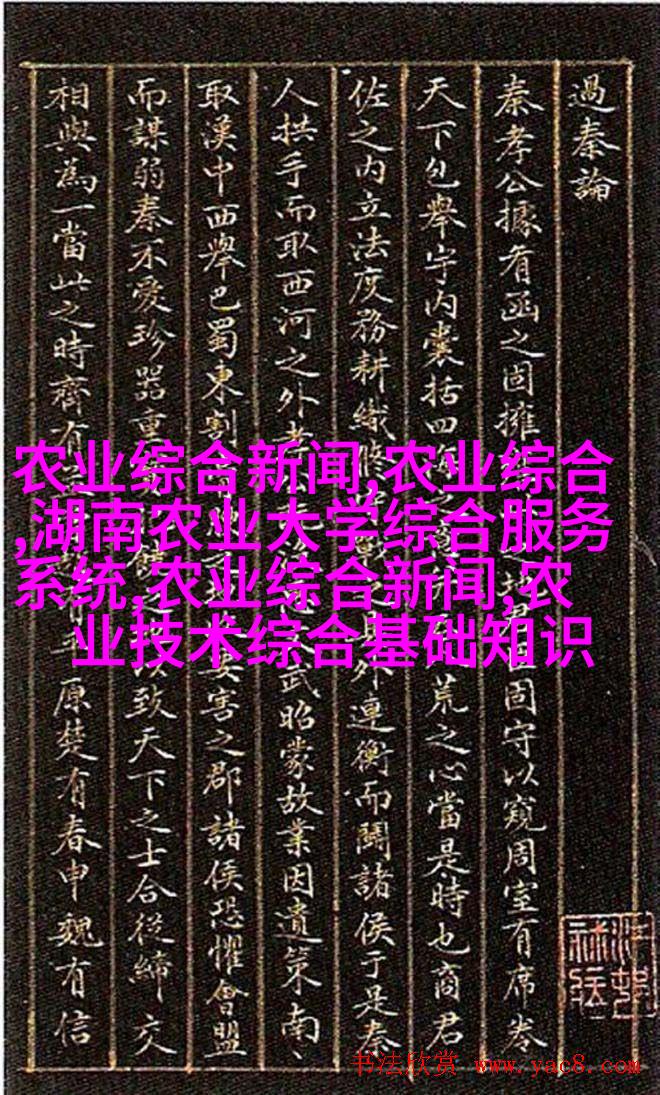 過秦論
秦孝公據有函之固擁君臣固守以窺周室有席卷
天下包舉宇內囊括四荒之心當是時也商君
佐之內立法度務耕織戰外連衡而鬪諸侯于是秦
人拱手而取西河之外武昭蒙故業因遺策南
取漢中西舉巴蜀東割要害之郡諸侯恐懼會盟
而謀弱秦不愛珍器重以致天下之士合從締交
相與為一當此之時齊有原楚有春申魏有信
农业综合新闻,农业综合
,湖南农业大学综合服务
系统,农业综合新闻,农
业技术综合基础知识
书法欣赏 www.yac8.com